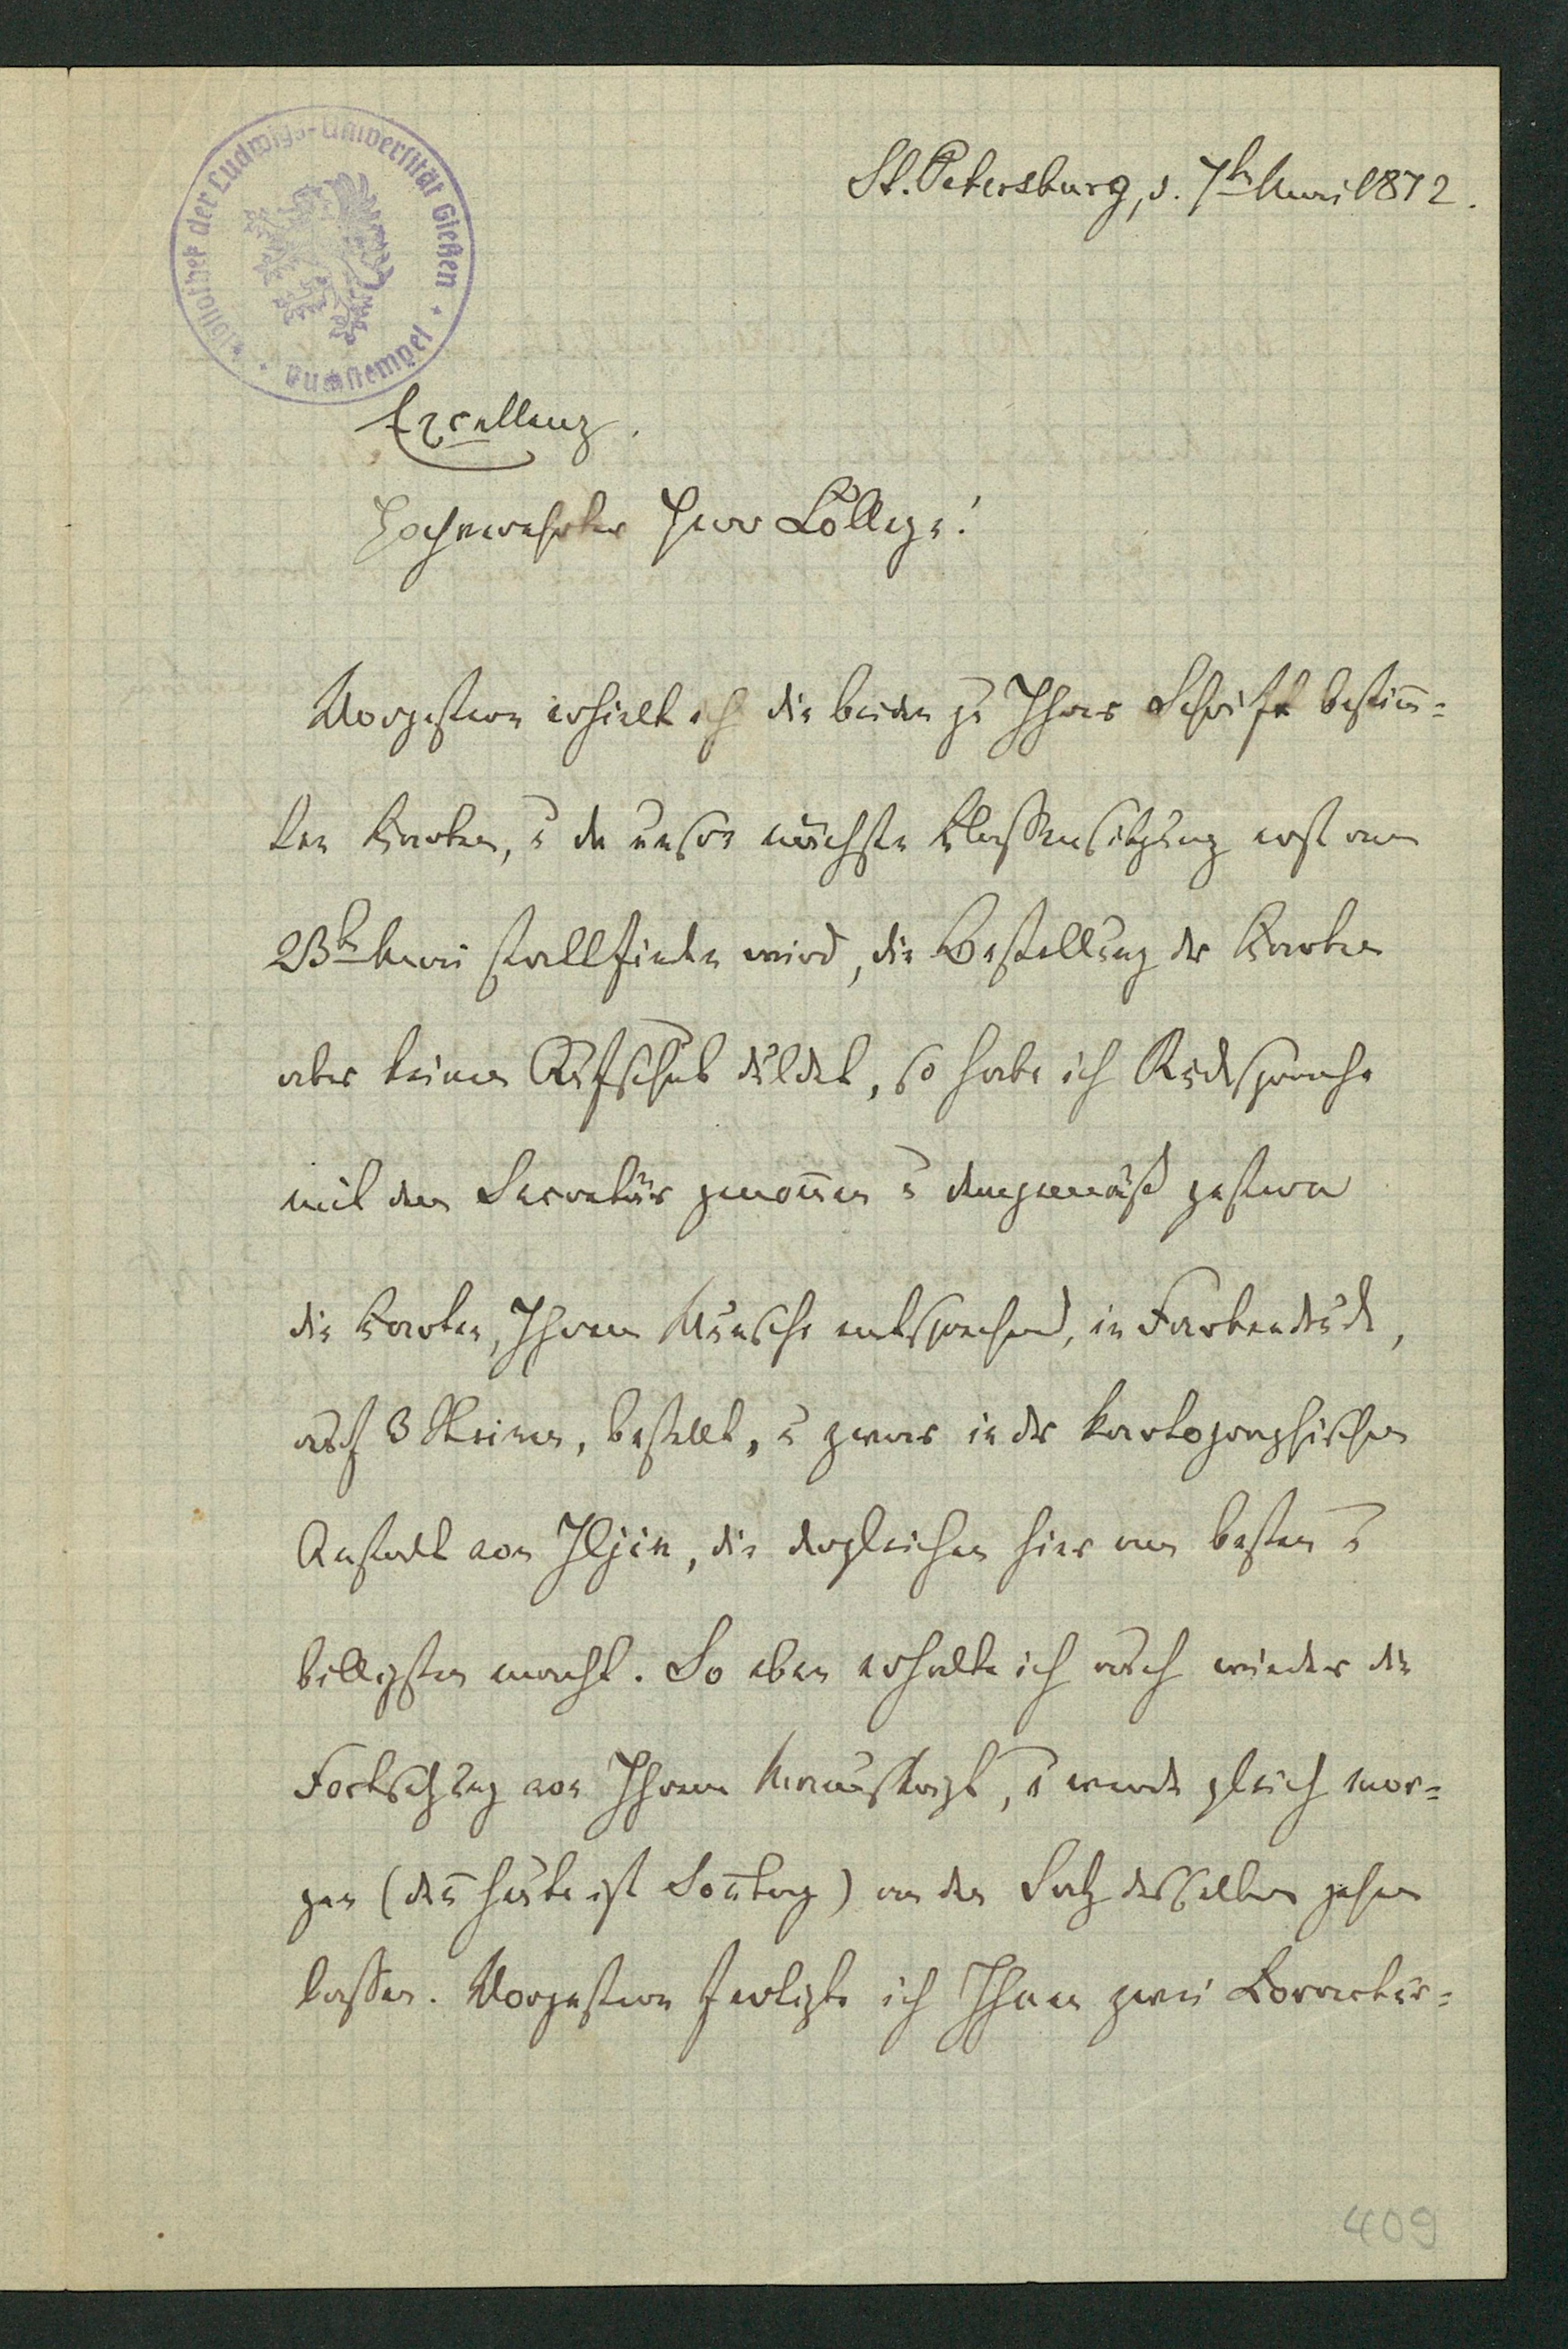 Bibliothek der Ludwigs-Universität Gießen
Buchstempel
St. Petersburg, d. 7t Mai 1872.
Excellenz.
Hochverehrter Herr College!
Vorgestern erhielt ich die beiden zu Ihrer Schrift bestim̄=
ten Karten, u da unsre nächste Klassensitzung erst am
23t Mai stattfinden wird, die Bestellung der Karten
aber keinen Aufschub duldet, so habe ich Rücksprache
mit dem Secretär genom̄en u demgemäß gestern
die Karten, Ihrem Wunsche entsprechend, in Farbendruck,
auf 3 Steinen, bestellt, u zwar in der kartographischen
Anstalt von Iljin, die dergleichen hier am besten u
billigsten macht. So eben erhalte ich auch wieder die
Fortsetzung von Ihrem Manuskript, u werde gleich mor=
gen (den̄ heute ist Son̄tag) an den Satz desselben gehen
lassen. Vorgestern fertigte ich Ihnen zwei Correctur=
409